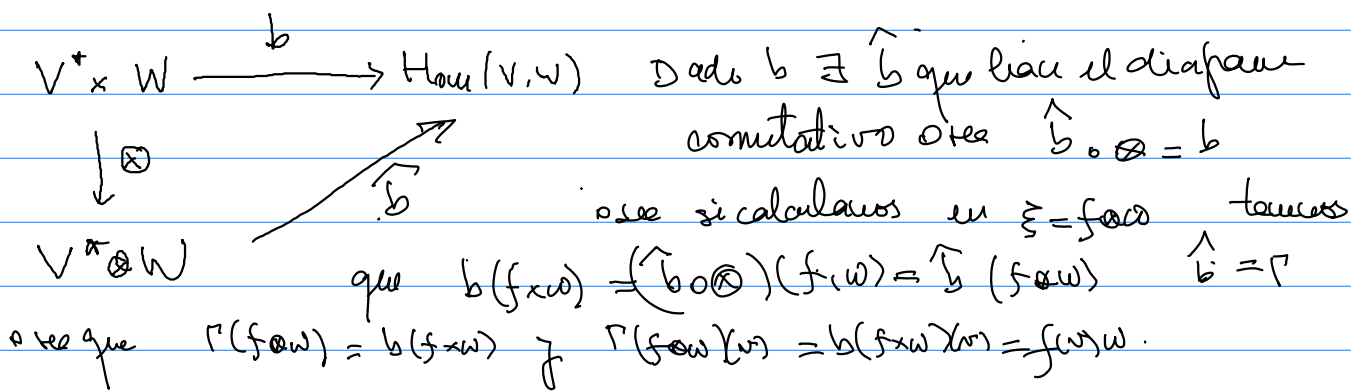 b
V* × W → Hom(V,W) Dado b ∃ b̂ que hace el diagrama
↓ ⊗ conmutativo osea b̂ ∘ ⊗ = b
b̂ osea si calculamos en ξ = f⊗ω tenemos
V*⊗W que b(f×ω) = (b̂∘⊗)(f,ω) = b̂(f⊗ω) b̂ = Γ
osea que Γ(f⊗ω) = b(f×ω) y Γ(f⊗ω)(v) = b(f×ω)(v) = f(v)ω.